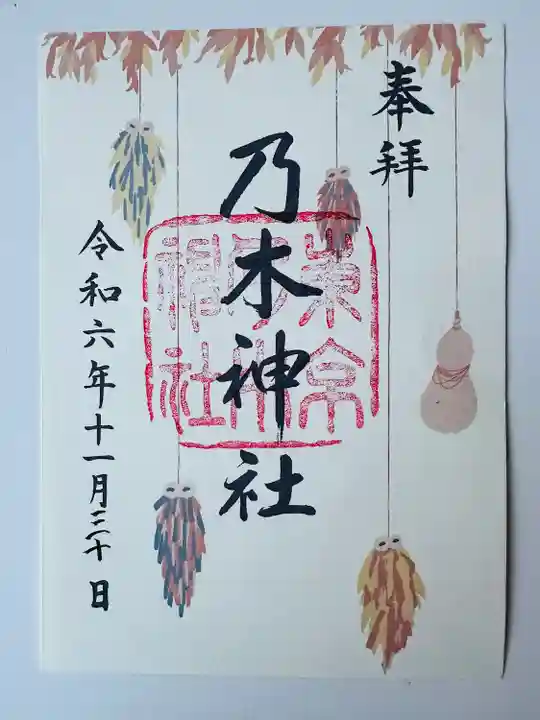 奉拝
乃木神社
東京
乃木
神社
令和六年十一月三十日